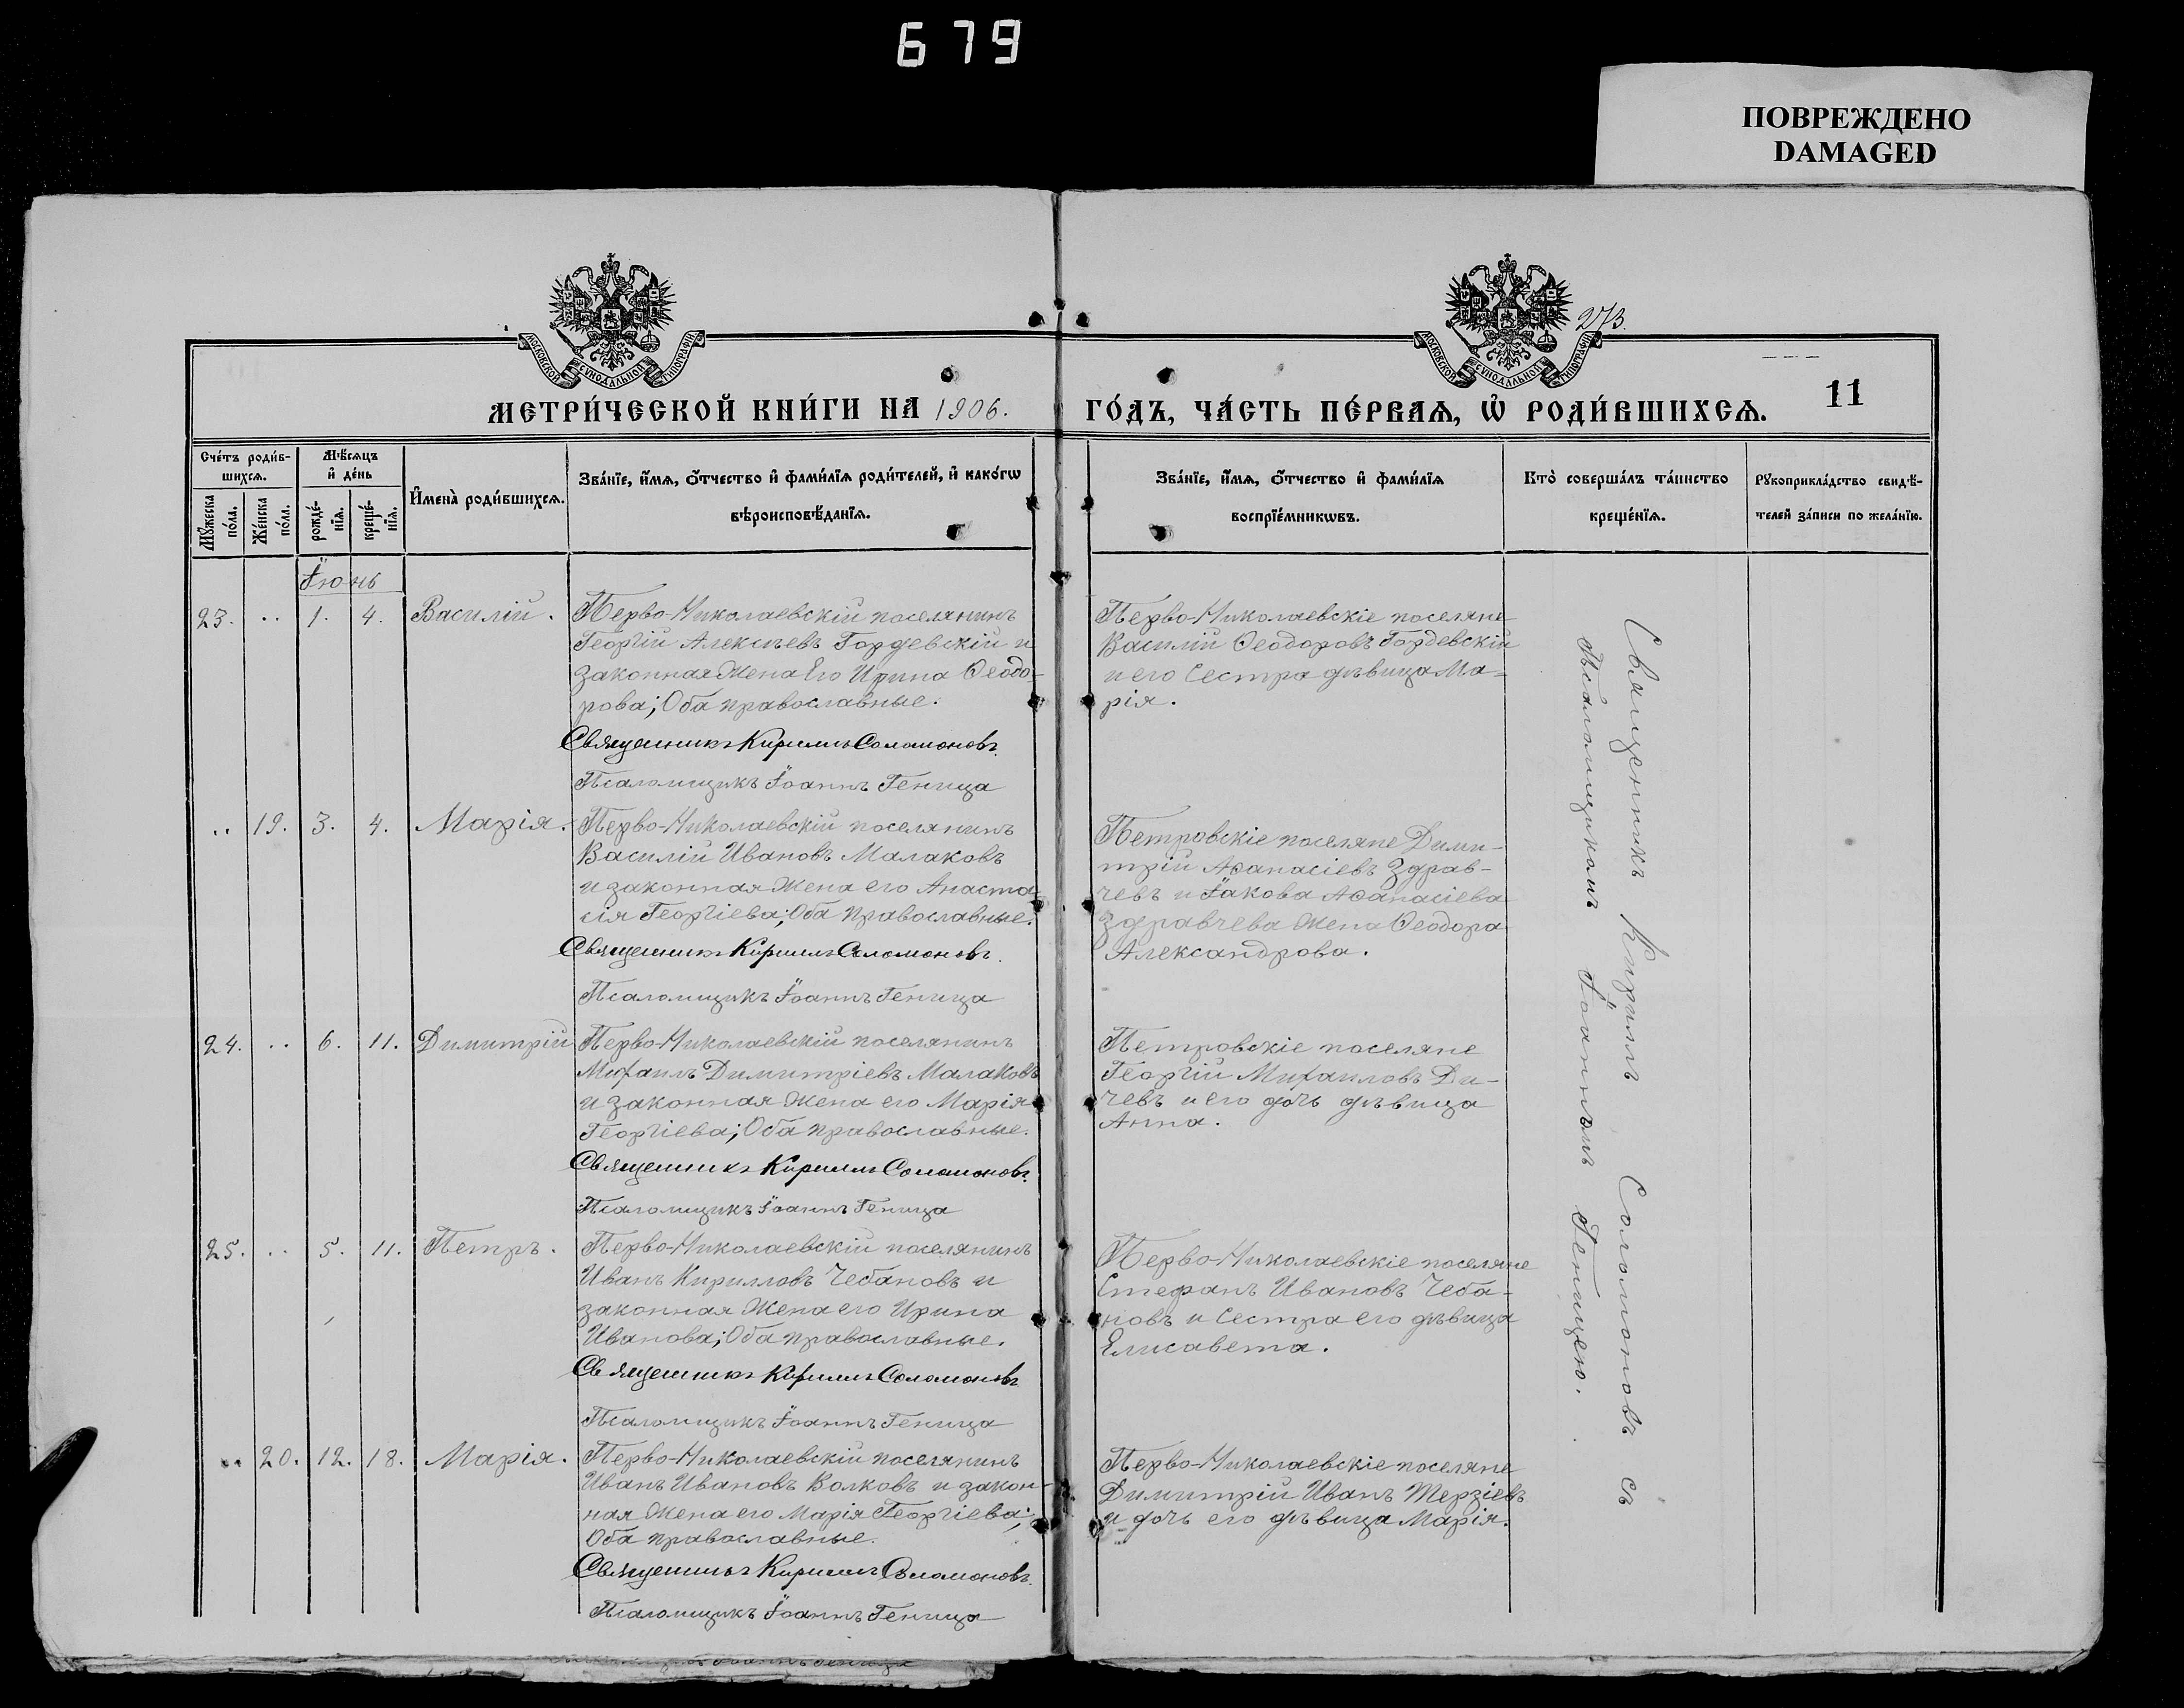 679
ПОВРЕЖДЕНО
DAMAGED
МОСКОВСКОЙ СУНОДАЛЬНОЙ ТИПОГРАФІИ
МОСКОВСКОЙ СУНОДАЛЬНОЙ ТИПОГРАФІИ
273.
МЕТРИ́ЧЕСКОЙ КНИ́ГИ НА 1906.
ГО́ДЪ, ЧА́СТЬ ПЕ́РВАѦ, Ѡ҆ РОДИ́ВШИХСѦ.
11
Сче́тъ роди́в-
шихсѧ.
Мꙋ́жеска
по́ла.
Же́нска
по́ла.
Мѣ́сѧцъ
и҆ де́нь
рожде́-
нїѧ.
креще́-
нїѧ.
И҆мена̀ роди́вшихсѧ.
Зва́нїе, и҆́мѧ, ѻ҆́тчество и҆ фами́лїѧ роди́телей, и҆ како́гѡ
вѣроисповѣ́данїѧ.
Зва́нїе, и҆́мѧ, ѻ҆́тчество и҆ фами́лїѧ
воспрїе́мникѡвъ.
Кто̀ соверша́лъ та́инство
креще́нїѧ.
Рꙋкоприкла́дство свидѣ́-
телей за́писи по жела́нїю.
Іюнь
23. .. 1. 4. Василій.
Перво-Николаевскій поселянинъ
Георгій Алексѣевъ Гордевскій и
законная жена его Ирина Ѳеодо-
рова; Оба православные.
Священникъ Кириллъ Соломоновъ.
Псаломщикъ Іоаннъ Геница
Перво-Николаевскіе поселяне
Василій Ѳеодоровъ Гордевскій
и его сестра дѣвица Ма-
рія.
.. 19. 3. 4. Марія.
Перво-Николаевскій поселянинъ
Василій Ивановъ Малаковъ
и законная жена его Анаста-
сія Георгіева; Оба православные.
Священникъ Кириллъ Соломоновъ.
Псаломщикъ Іоаннъ Геница
Петровскіе поселяне Дими-
трій Аѳанасіевъ Здрав-
чевъ и Іакова Аѳанасіева
Здравчева жена Ѳеодора
Александрова.
24. .. 6. 11. Димитрій
Перво-Николаевскій поселянинъ
Михаилъ Димитріевъ Малаковъ
и законная жена его Марія
Георгіева; Оба православные.
Священникъ Кириллъ Соломоновъ.
Псаломщикъ Іоаннъ Геница
Петровскіе поселяне
Георгій Михаиловъ Ди-
чевъ и его дочь дѣвица
Анна.
25. .. 5. 11. Петръ.
Перво-Николаевскій поселянинъ
Иванъ Кирилловъ Чебановъ и
законная жена его Ирина
Иванова; Оба православные.
Священникъ Кириллъ Соломоновъ
Псаломщикъ Іоаннъ Геница
Перво-Николаевскіе поселяне
Стефанъ Ивановъ Чеба-
новъ и сестра его дѣвица
Елисавета.
.. 20. 12. 18. Марія.
Перво-Николаевскій поселянинъ
Иванъ Ивановъ Волковъ и закон-
ная жена его Марія Георгіева;
Оба православные.
Священникъ Кириллъ Соломоновъ.
Псаломщикъ Іоаннъ Геница
Перво-Николаевскіе поселяне
Димитрій Иванъ Терзіевъ
и дочь его дѣвица Марія.
Священникъ Кириллъ Соломоновъ съ
Псаломщикомъ Іоанномъ Геницею.